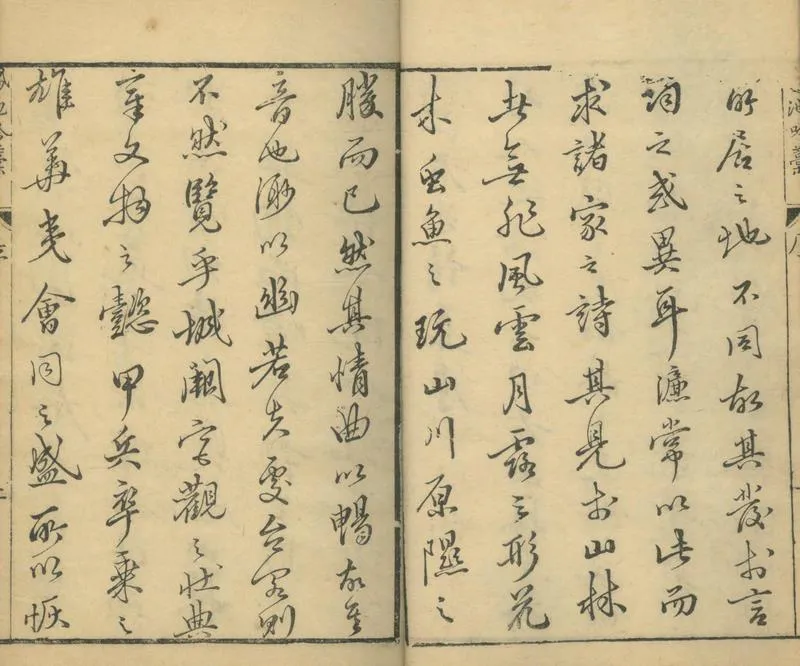 池吟藁
所居之地不同故其發於言
詞之或異耳濂常以此而
求諸家之詩其見於山林
者無非風雲月露之形花
木虫魚之玩山川原隰之
勝而已然其情曲以暢故其
音也渺以幽若夫處台閣則
不然覽乎城闕宮觀之壯典
章文物之懿甲兵卒乘之
雄華夷會同之盛所以恢